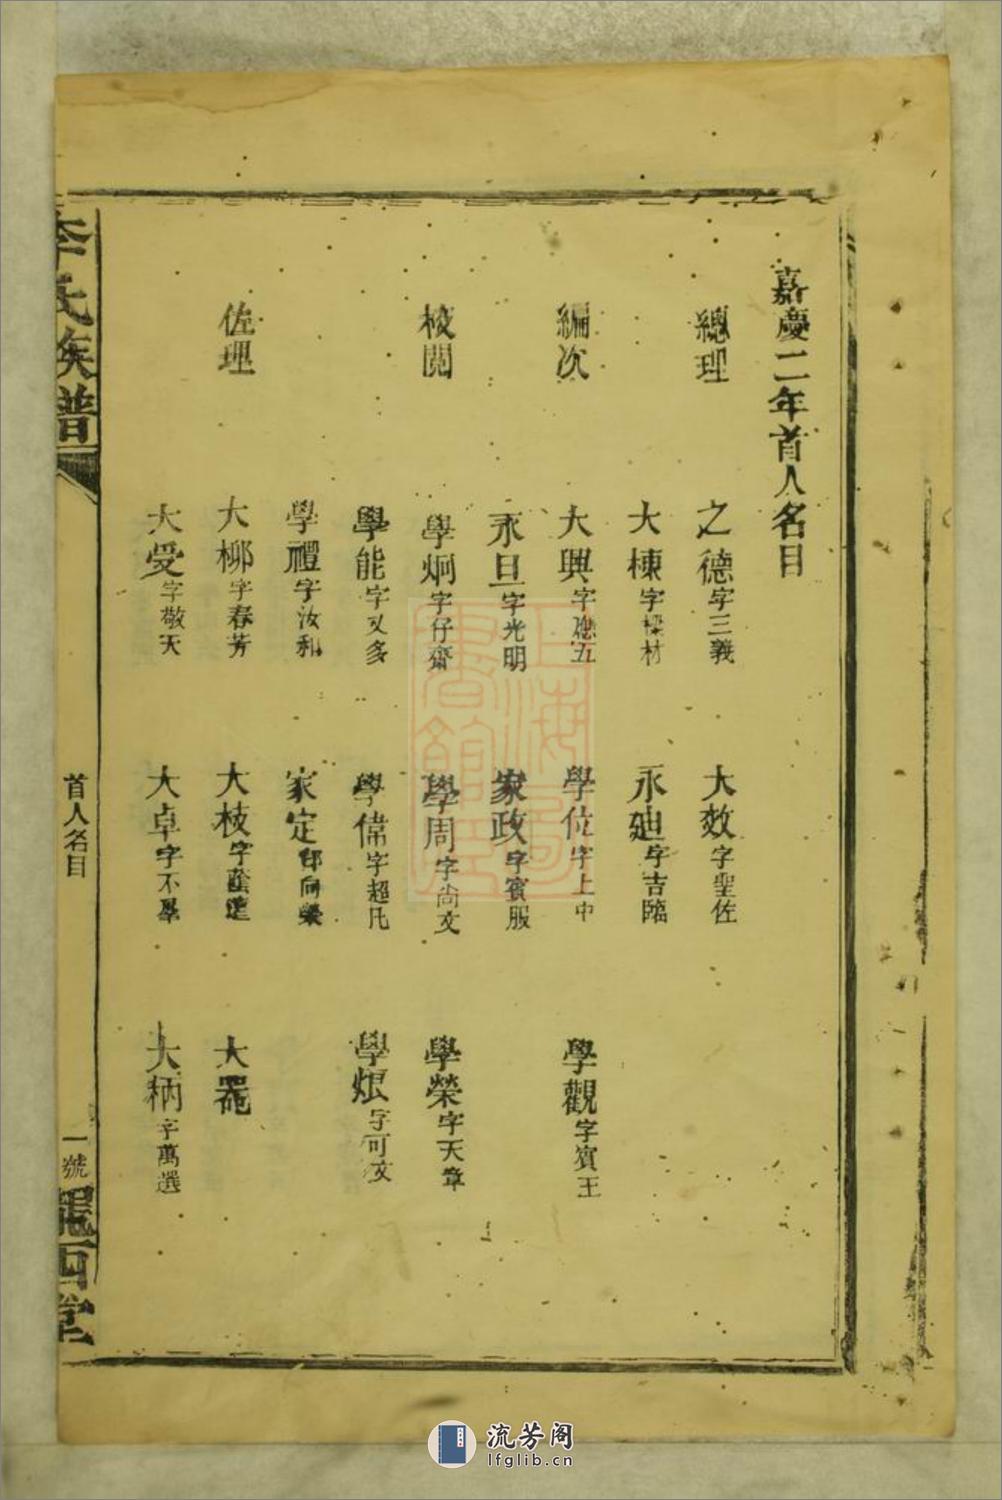 嘉慶二年首人名目
總理
之德字三義
大效字聖佐
大棟字樑材
永廸字吉臨
編次
大興字應五
學位字上中
學觀字賓王
永旦字光明
家政字賓服
校閱
學炯字仔齋
學周字尚文
學榮字天章
學能字又多
學偉字超凡
學烺字可文
學禮字汝和
家定
佐理
大柳字春芳
大枝字
大器
大受字敬天
大卓字不羣
大柄字萬選
李氏族譜
首人名目
一號
隴西堂
上海圖書館藏
流芳阁
lfglib.cn